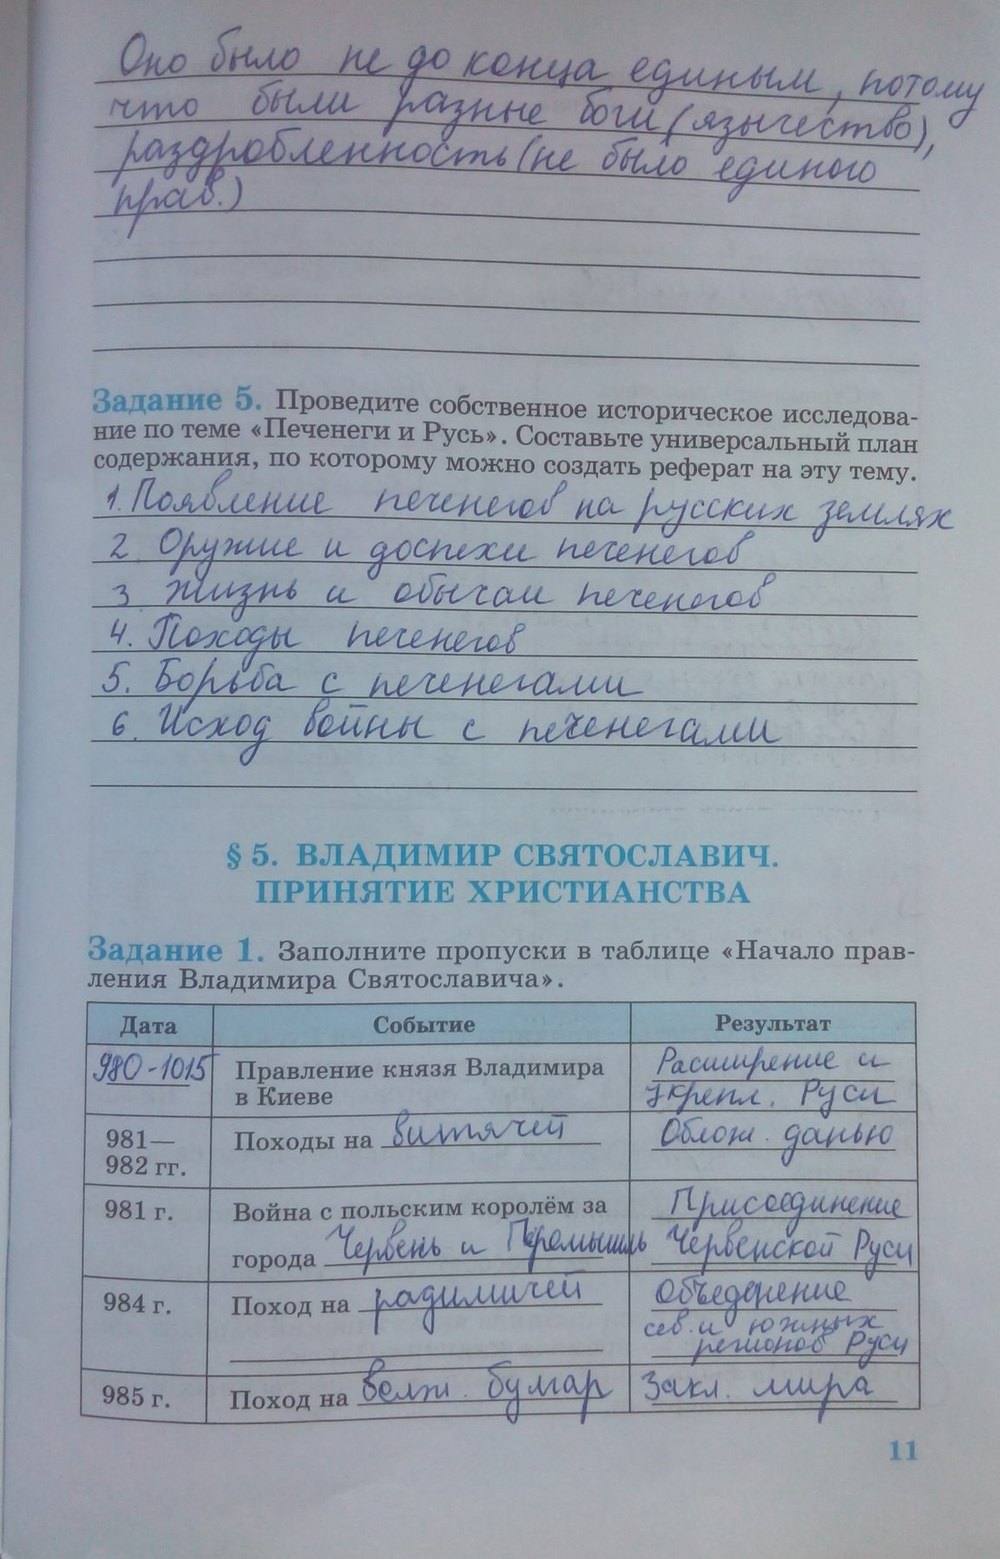 Оно было не до конца единым, потому
что были разные боги (язычество),
раздробленность (не было единого
прав.)
Задание 5. Проведите собственное историческое исследова-
ние по теме «Печенеги и Русь». Составьте универсальный план
содержания, по которому можно создать реферат на эту тему.
1. Появление печенегов на русских землях
2. Оружие и доспехи печенегов
3. Жизнь и обычаи печенегов
4. Походы печенегов
5. Борьба с печенегами
6. Исход войны с печенегами
§ 5. ВЛАДИМИР СВЯТОСЛАВИЧ.
ПРИНЯТИЕ ХРИСТИАНСТВА
Задание 1. Заполните пропуски в таблице «Начало прав-
ления Владимира Святославича».
Дата Событие Результат
980-1015 Правление князя Владимира Расширение и
в Киеве укрепл. Руси
981— Походы на витячей Облож. данью
982 гг.
981 г. Война с польским королём за Присоединение
города Червень и Перемышль Червенской Руси
984 г. Поход на радимичей Объеденение
сев. и южных
регионов Руси
985 г. Поход на волж. булгар Закл. мира
11